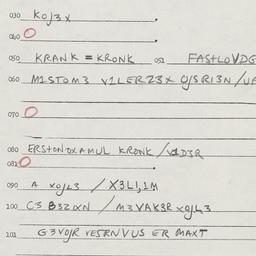 030 KOJ3X
040
050 KRANK = KRONK 051 FASTLOVDG
060 M1STOM3 V1LERZ3X OJSRI3N /UF
070
080 ERSTONOXAMUL KRONK /V1D3R
082
090 A XOJL3 / X3L1,1M
100 C3 B3ZIXN / M3VAK3R XOJL3
101 G3VOJR VESRNVUS ER MAXT